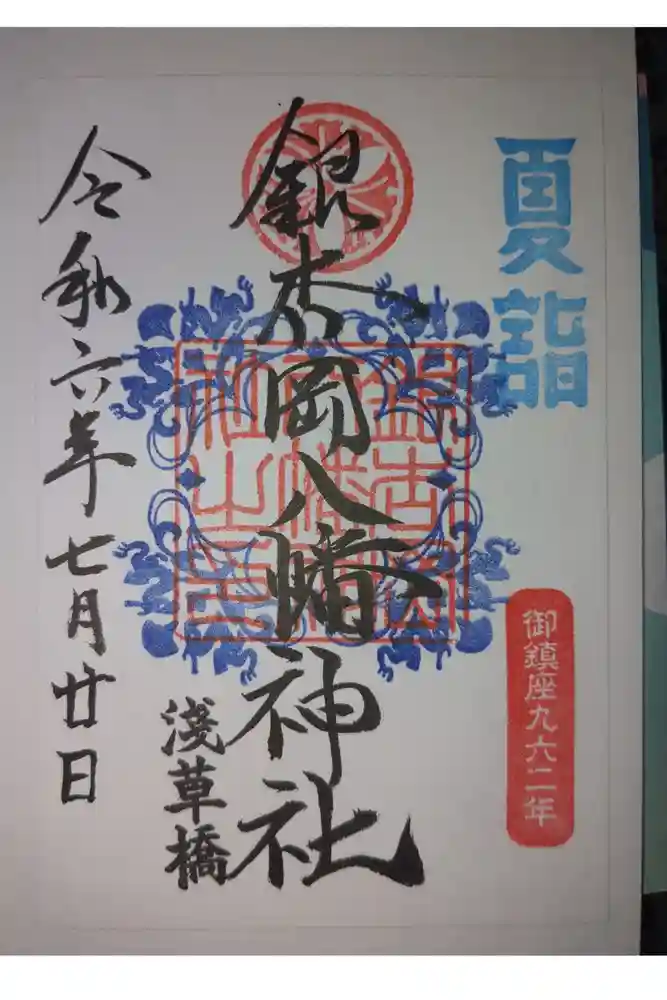 夏詣
御鎮座九六二年
銀杏岡八幡神社
銀杏岡
八幡神
社之印
淺草橋
令和六年七月廿日